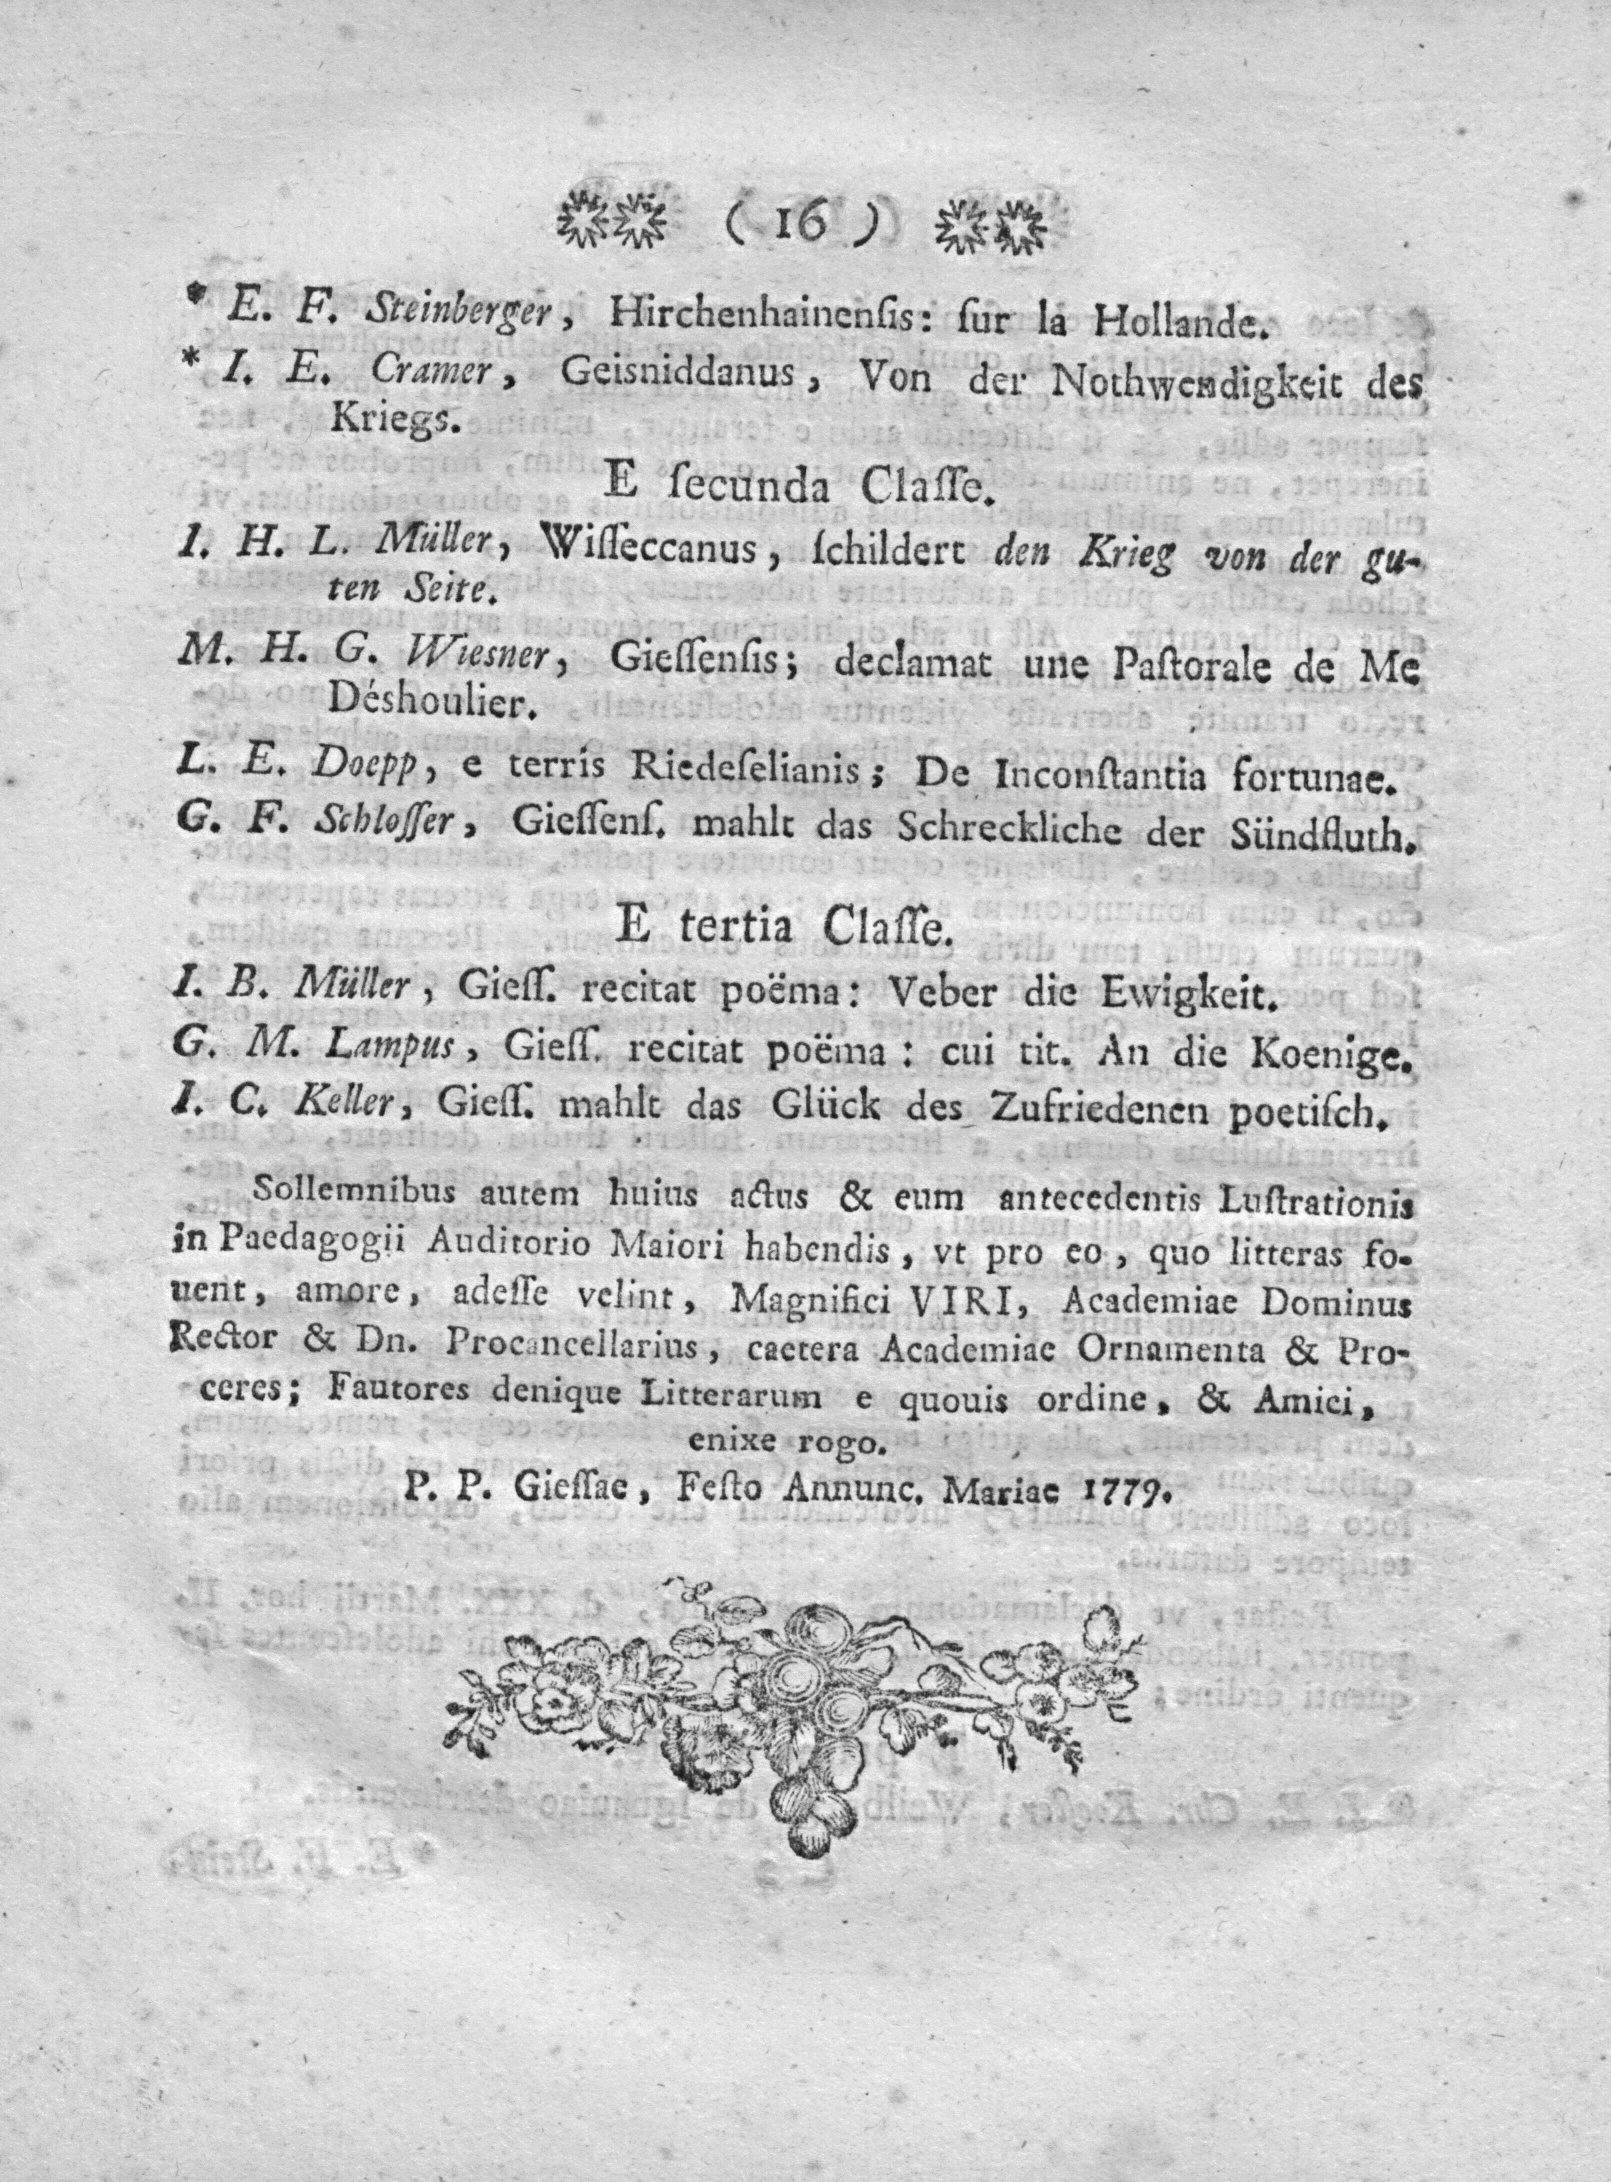 ( 16 )
* E. F. Steinberger, Hirchenhainenſis: ſur la Hollande.
* I. E. Cramer, Geisniddanus, Von der Nothwendigkeit des
Kriegs.
E ſecunda Claſſe.
I. H. L. Müller, Wiſſeccanus, ſchildert den Krieg von der gu-
ten Seite.
M. H. G. Wiesner, Gieſſenſis; declamat une Paſtorale de Me
Déshoulier.
L. E. Doepp, e terris Riedeſelianis; De Inconſtantia fortunae.
G. F. Schloſſer, Gieſſenſ. mahlt das Schreckliche der Sündfluth.
E tertia Claſſe.
I. B. Müller, Gieſſ. recitat poëma: Veber die Ewigkeit.
G. M. Lampus, Gieſſ. recitat poëma: cui tit. An die Koenige.
I. C. Keller, Gieſſ. mahlt das Glück des Zufriedenen poetiſch.
Sollemnibus autem huius actus & eum antecedentis Luſtrationis
in Paedagogii Auditorio Maiori habendis, vt pro eo, quo litteras fo-
uent, amore, adeſſe velint, Magnifici VIRI, Academiae Dominus
Rector & Dn. Procancellarius, caetera Academiae Ornamenta & Pro-
ceres; Fautores denique Litterarum e quouis ordine, & Amici,
enixe rogo.
P. P. Gieſſae, Feſto Annunc. Mariae 1779.